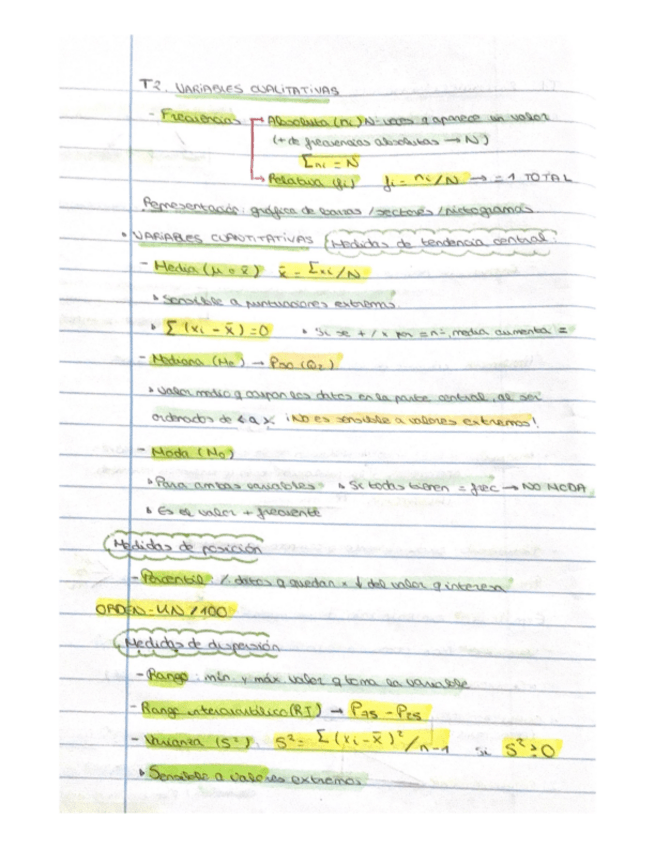 T2. VARIABLES CUALITATIVAS
- Frecuencias → Absoluta (ni) Nº veces q aparece un valor
(+ de frecuencias absolutas → N)
Σni = N
→ Relativa (fi) fi = ni/N → = 1 TOTAL
Representación: gráfica de barras / sectores / pictogramas
• VARIABLES CUANTITATIVAS (Medidas de tendencia central:
- Media (μ o x̄) x̄ = Σxi/N
• Sensible a puntuaciones extremas
• Σ(xi - x̄) = 0 • Si se + / x por = nº, media aumenta =
- Mediana (Me) → P50 (Q2)
• Valor medio q ocupan los datos en la parte central, al ser
ordenados de < a >. ¡No es sensible a valores extremos!
- Moda (Mo)
• Para ambas variables • Si todas tienen = frec → NO MODA
• Es el valor + frecuente
Medidas de posición
- Percentil: % datos q quedan x ↓ del valor q interesa
ORDEN = K·N/100
Medidas de dispersión
- Rango: mín y máx valor q toma la variable
- Rango intercuartílico (RI) → P75 - P25
- Varianza (S²) S² = Σ(xi - x̄)²/n-1 si S² ≥ 0
• Sensible a valores extremos